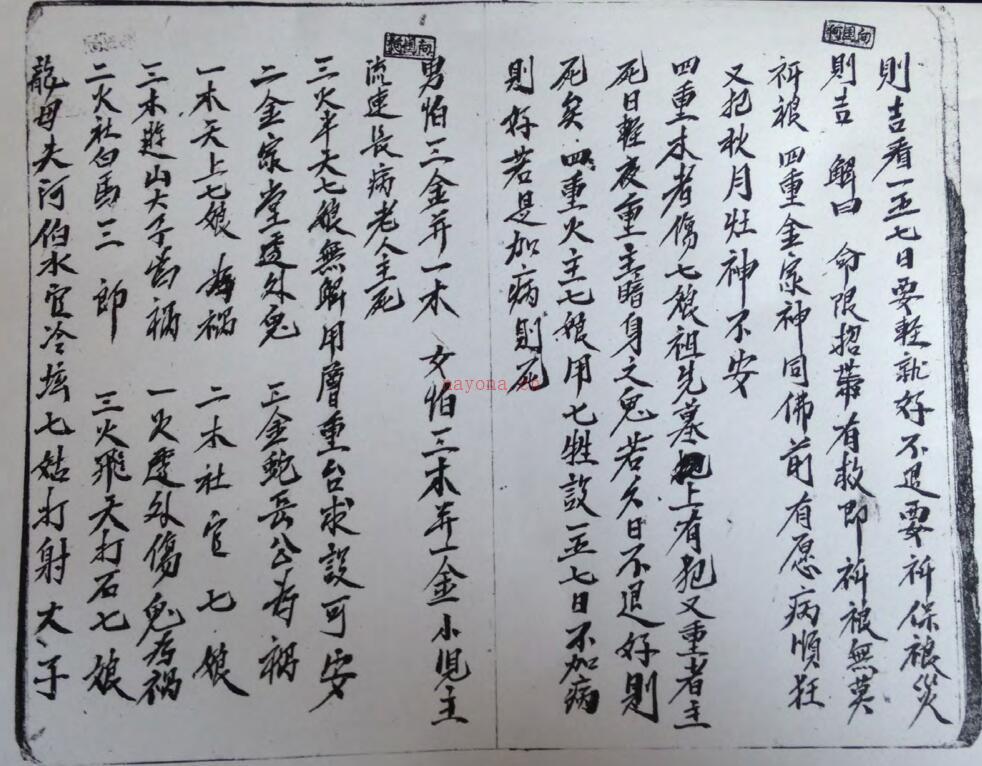 則吉看一五七日要輕就好不退要祈保禳災
則吉 解曰 命限招帶有救即祈禳無莫
祈禳四重金家神同佛前有愿病順狂
又犯秋月灶神不安
四重木者傷七娘祖先墓上有犯又重者主
死日輕夜重主暗身之鬼若久日不退好則
死矣四重火主七娘用七牲設一五七日不加病
則好若是加病則死
男怕三金并一木 女怕三木并一金小児主
流連長病老人主死
三火半天七娘無解用層重台求設可安
二金家堂透外鬼 三金蛇岳公為禍
一木天上七娘為禍 二木社官七娘
三木遊山大子為禍 一火歷外傷鬼為禍
二火社白馬三郎 三火飛天打石七娘
龍母夫河伯水官冷壇七姑打射大子
nayona.cn